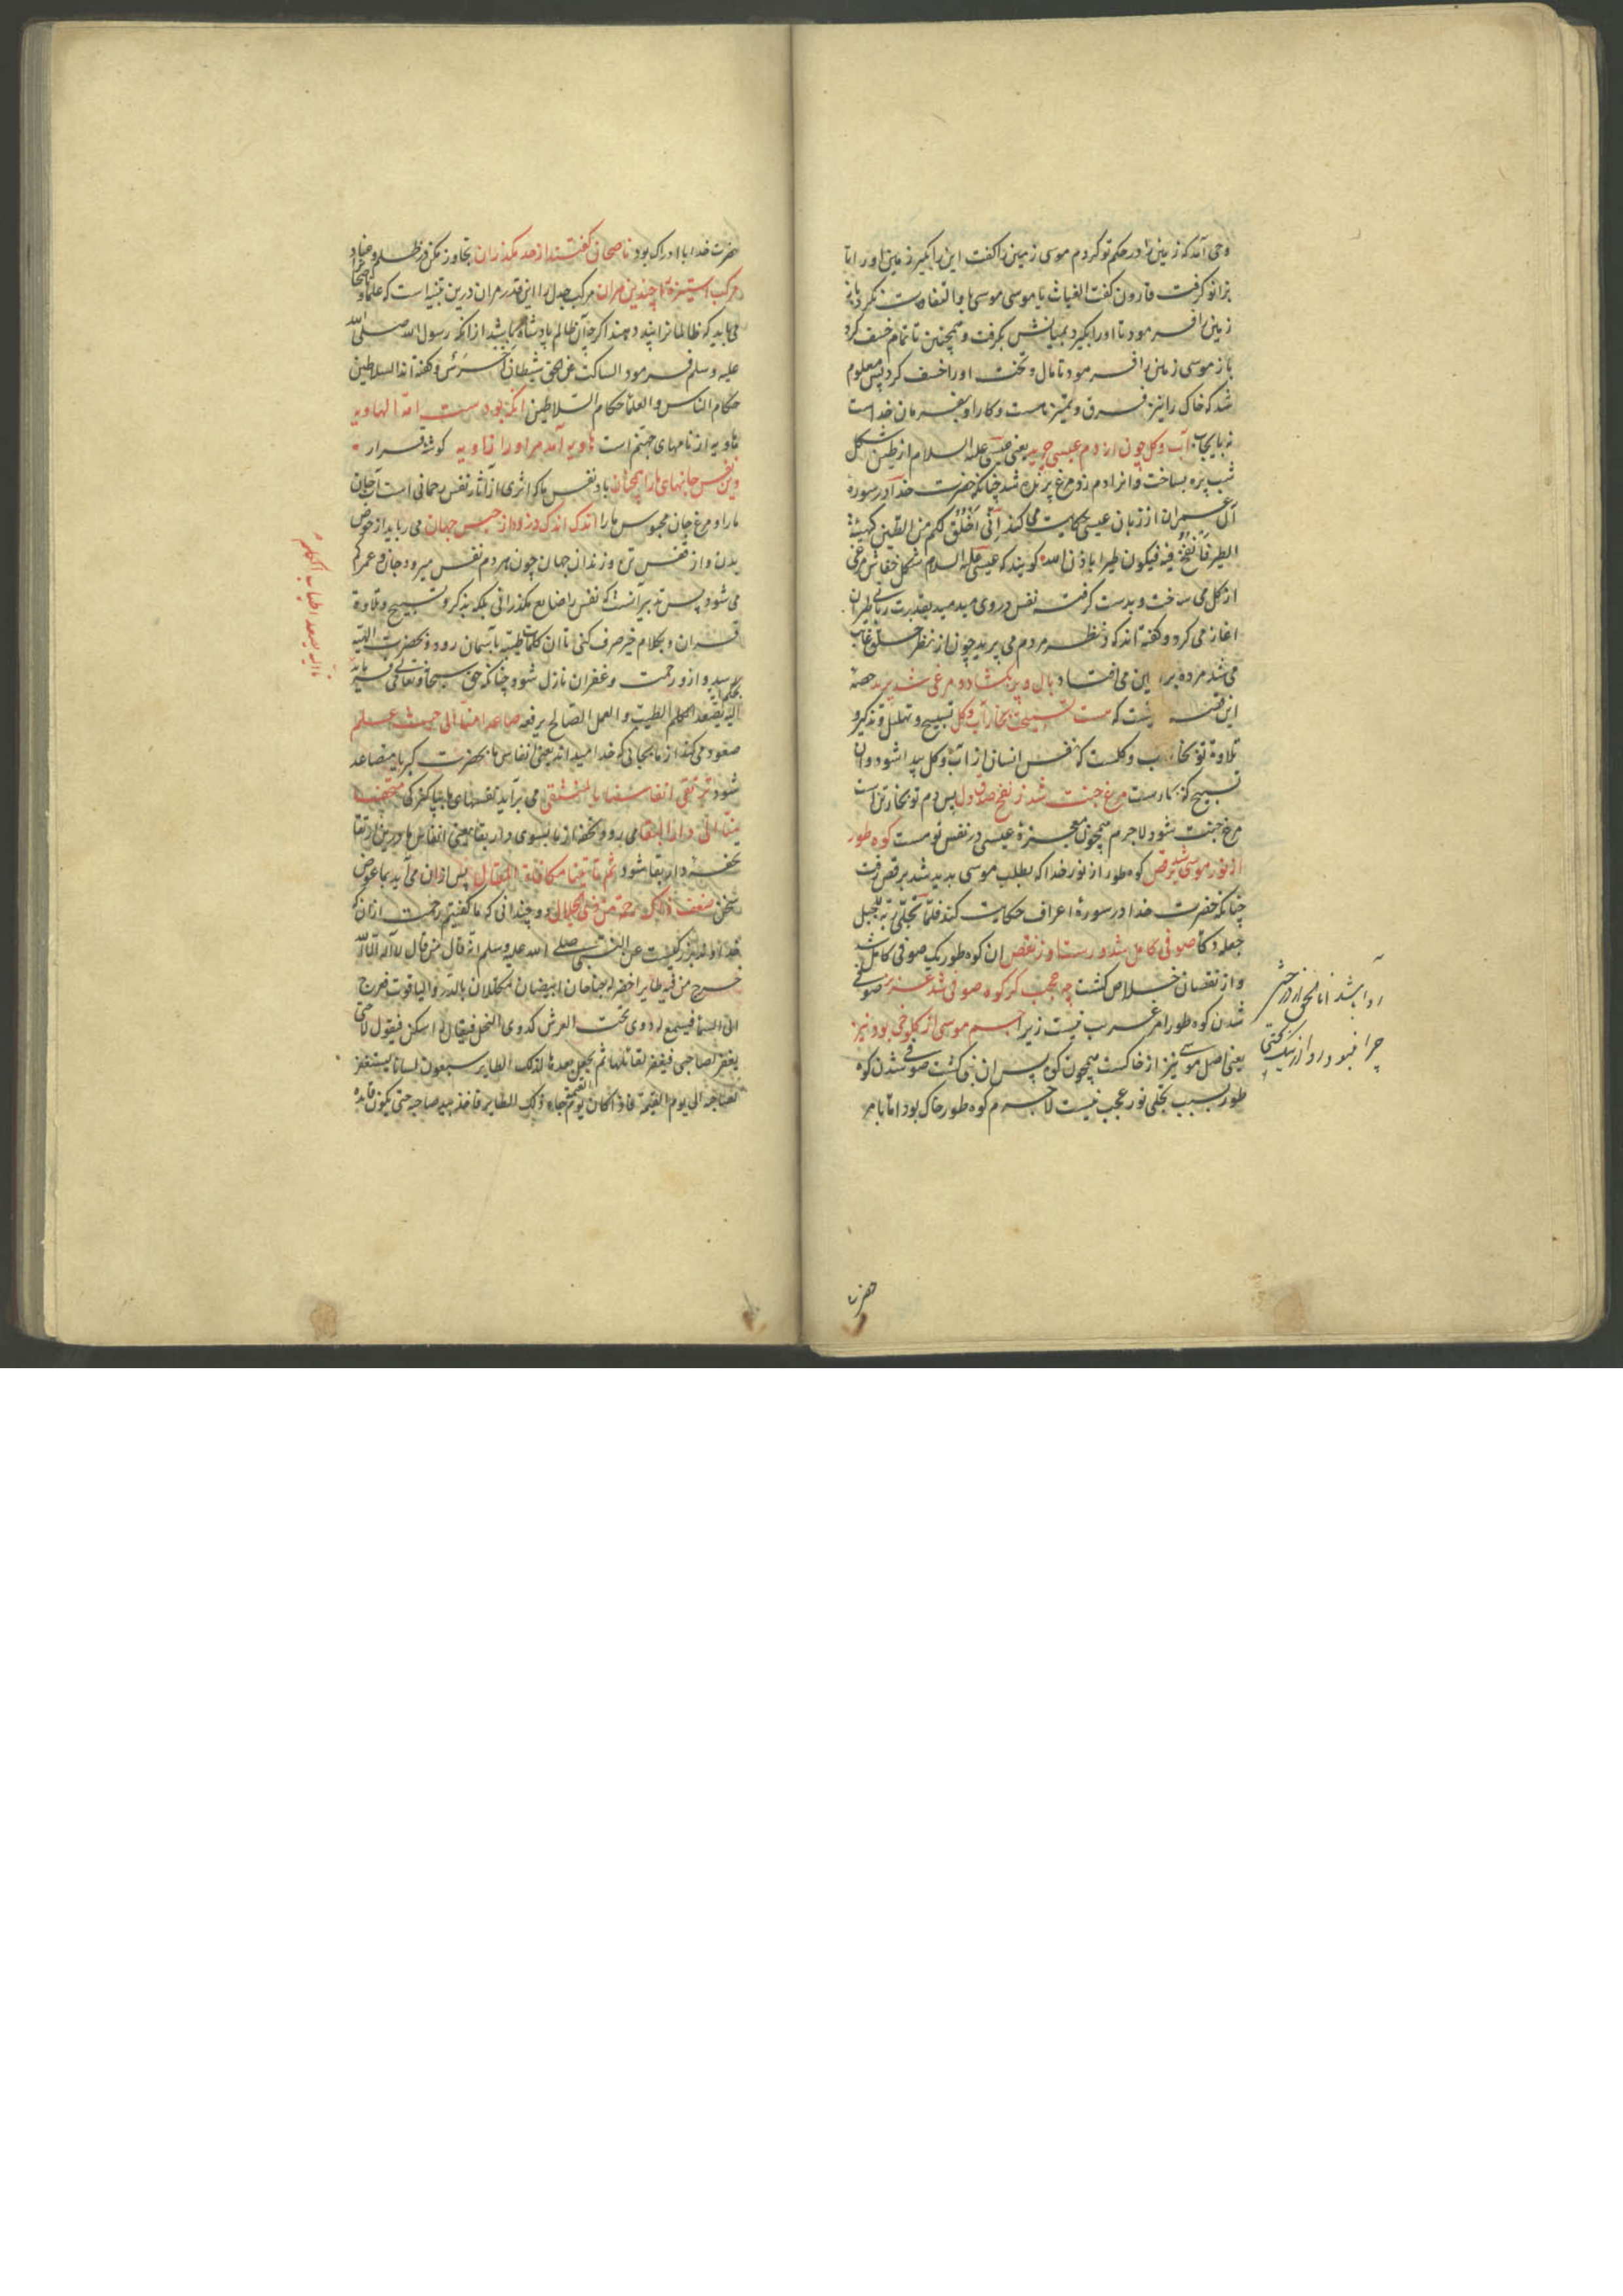 وحی آمد که زمین را در حکم تو کردم موسی زمین را گفت این را بگیر زمین او را تا
بزانو گرفت قارون گفت الغیاث یا موسی موسی با و التفات نکرد باز
زمین را فرمود تا او را بگیرد بمیانش بگرفت و همچنین تا تمام خسف کرد
باز موسی زمین را فرمود تا مال و تخت او را خسف کرد پس معلوم
شد که خاک را نیز فرق و تمیز هست و کار او بفرمان خداست
آب و گل چون از دم عیسی چرید یعنی عیسی علیه السلام از طین شکل
شب پره بساخت و اندرو دم زد مرغ پرنده شد چنانکه حضرت خدا در سوره
آل عمران از زبان عیسی حکایت می کند انی اخلق لکم من الطین کهیئة
الطیر فانفخ فیه فیکون طیرا باذن الله گویند که عیسی علیه السلام شکل خفاش مرغی
از گل می ساخت و بدست گرفته نفس در وی میدمید بقدرت ربانی طیران
اغاز می کرد و گفته اند که در نظر مردم می پرید چون از نظر خلق غایب
می شد مرده بر زمین می افتاد بال و پر بکشاد و مرغی شد پرید حصه
این قصه که هست تسبیحت بخار آب و گل تسبیح و تهلیل و تذکیر و
تلاوة تو بخار آب و گلست که نفس انسانی از آب و گل پیدا شود و ان
تسبیح که بخارست مرغ جنت شد ز نفخ صدق دل پس دم تو بخار تن است
مرغ جنت شود لاجرم همچون معجزهٔ عیسی در نفس تو هست کوه طور
از نور موسی شد برقص کوه طور از نور خدا که بطلب موسی پدید شد برقص رفت
چنانکه حضرت خدا در سورهٔ اعراف حکایت کند فلما تجلی ربه للجبل
جعله دکا صوفی کامل شد و رست او ز نقص ان کوه طور یک صوفی کامل شد
و از نقصان خلاص گشت چه عجب گر کوه صوفی شد عزیز صوفی
شدن کوه طور امر غریب نیست زیرا جسم موسی از کلوخی بود نیز
یعنی اصل موسی نیز از خاکست همچون کوه پس ان نبی گشت صوفی شدن کوه
طور بسبب تجلی نور عجب نیست لاجرم کوه طور خاک بود اما بامر
روا باشد انا الحق از درختی
چرا نبود روا از نیک بختی
حضرت
حضرت خدا با ادراک بود ناصحان گفتند از حد مگذران تجاوز مکن در ظلم و عناد
مرکب استیزه را چندین مران مرکب جدل را این قدر مران درین تنبیه است که علما و
می باید که ظالمانرا پند دهند اگرچه آن ظالم پادشاه باشد از انکه رسول الله صلی الله
علیه وسلم فرمود الساکت عن الحق شیطان اخرس و گفته اند السلاطین
حکام الناس و العلما حکام السلاطین امه الهاویه
هاویه از نامهای جهنم است هاویه آمد مر او را زاویه گوشهٔ قرار
وین نفس جانهای ما را همچنان باد نفس ما که اثری از آثار نفس رحمانی است
ما را و مرغ جان محبوس ما را اندک اندک دزدد از حبس جهان می رباید از حوض
بدن و از قفس تن و زندان جهان چون هر دم نفس میرود جان و عمر کم
می شود پس تدبیر آنست که نفس را ضایع نگذرانی بلکه بذکر و تسبیح و تلاوة
قران و بکلام خیر صرف کنی تا ان کلمات طیبه بآسمان رود و بحضرت الهیه
برسد و ازو رحمت و غفران نازل شود چنانکه حق سبحانه و تعالی
الیه یصعد الکلم الطیب والعمل الصالح یرفعه صاعدا منا الی حیث علم
صعود می کند از ما بجایی که خدا میداند یعنی انفاس ما بحضرت کبریا متصاعد
شود ترتقی انفاسنا بالمنتقی می برآید نفسهای ما بپاکیزگی متحفا
منا الی دار البقا می رود تحفه از ما بسوی دار بقا یعنی انفاس ما درین ارتقا
تحفهٔ دار بقا شود ثم تاتینا مکافاة المقال پس ازان می آید بما عوض
سخن ضعف ذاک رحمة من ذی الجلال دو چندانی که ما گفتیم رحمت ازان که
خداوند بزرگیست عن النبی صلی الله علیه وسلم انه قال من قال لا اله الا الله
خرج من فیه طایر اخضر له جناحان ابیضان مکللان بالدر و الیاقوت فعرج
الی السما فیسمع له دوی تحت العرش کدوی النحل فیقال له اسکن فیقول لا حتی
یغفر لصاحبی فیغفر لقائلها ثم یجعل بعدها لذلک الطایر سبعون لسانا یستغفر
لصاحبه الی یوم القیمة فاذا کان یوم القیمة جاء ذلک الطایر فاخذ بید صاحبه حتی یکون قایده
الیه یصعد اطیاب الکلم